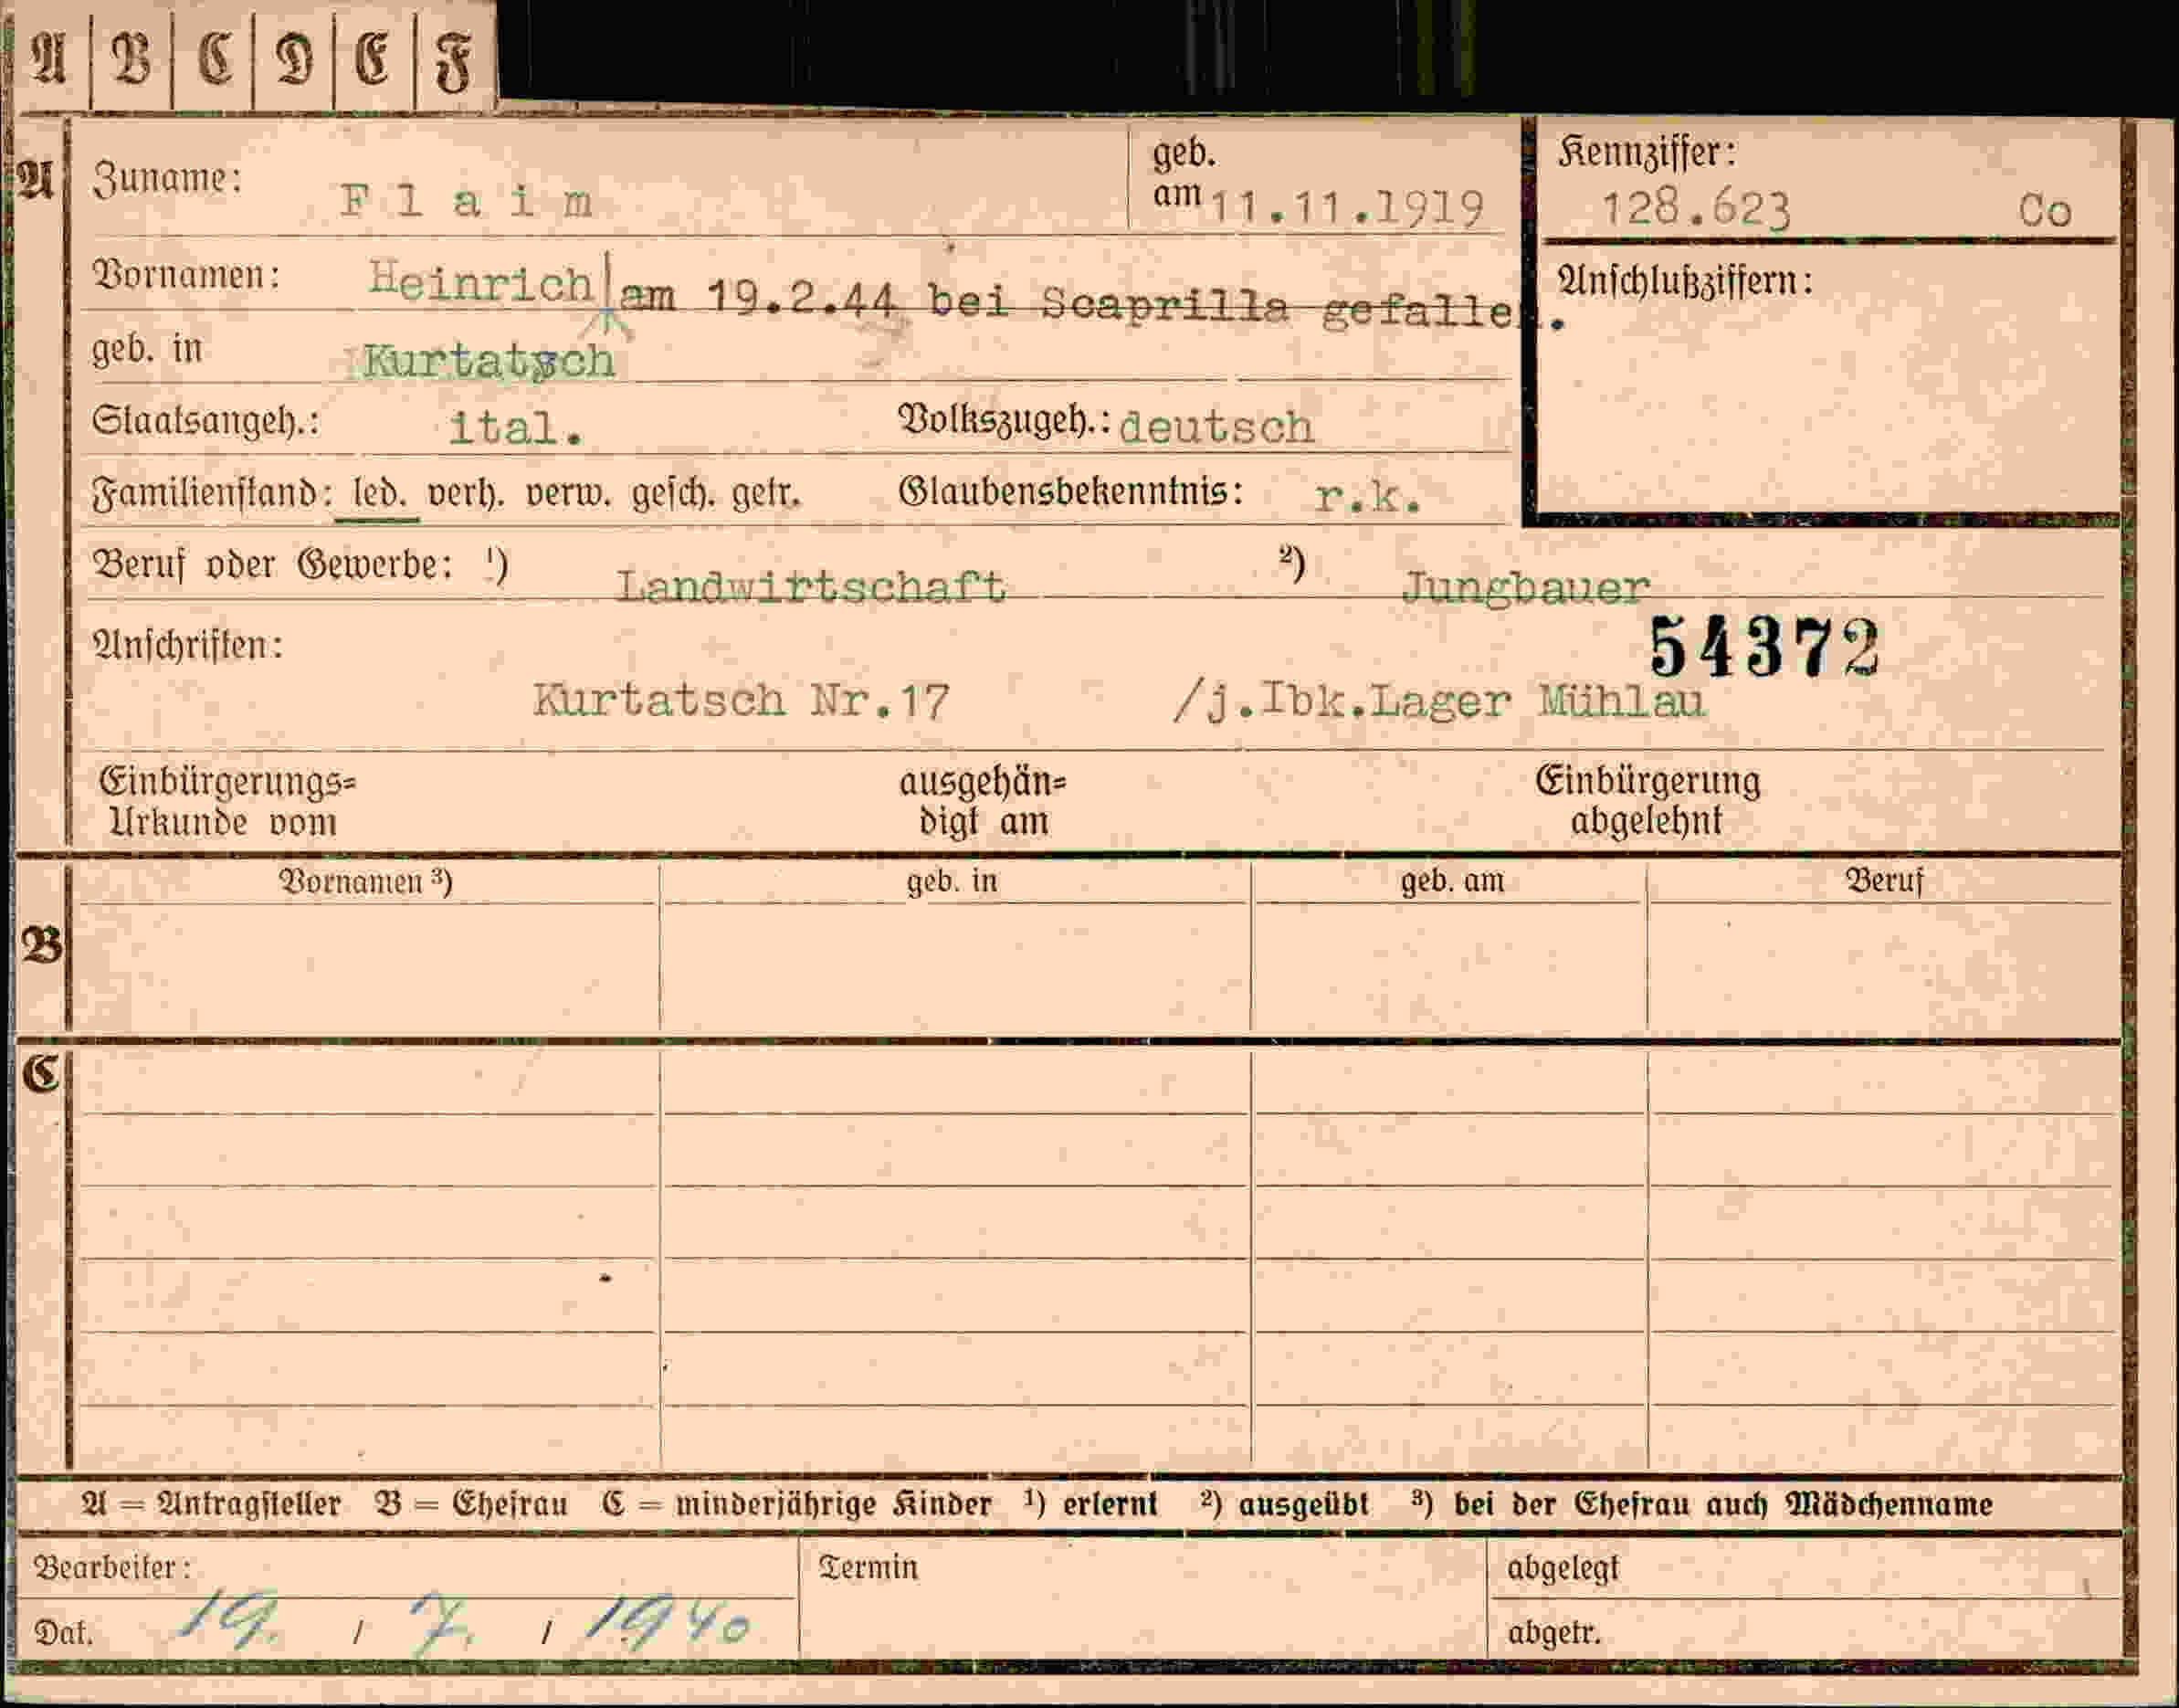 A B C D E F
A Zuname: Flaim geb. am 11.11.1919 Kennziffer: 128.623 Co
Vornamen: Heinrich am 19.2.44 bei Scaprilla gefallen. Anschlußziffern:
geb. in Kurtatsch
Staatsangeh.: ital. Volkszugeh.: deutsch
Familienstand: led. verh. verw. gesch. getr. Glaubensbekenntnis: r.k.
Beruf oder Gewerbe: 1) Landwirtschaft 2) Jungbauer
Anschriften: 54372
Kurtatsch Nr.17 /j.Ibk.Lager Mühlau
Einbürgerungs= ausgehän= Einbürgerung
Urkunde vom digt am abgelehnt
Vornamen 3) geb. in geb. am Beruf
B
C
A = Antragsteller B = Ehefrau C = minderjährige Kinder 1) erlernt 2) ausgeübt 3) bei der Ehefrau auch Mädchenname
Bearbeiter: Termin abgelegt
Dat. 19. / 7. / 1940 abgetr.